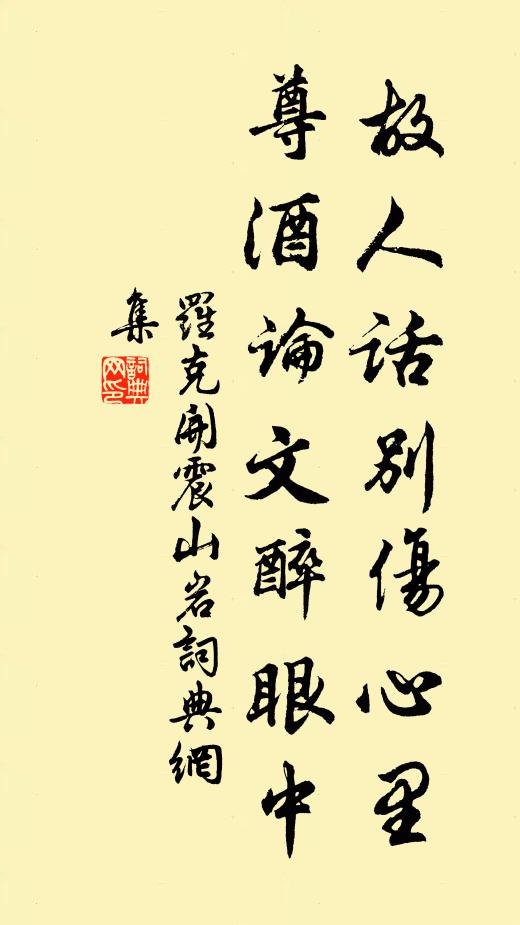 故人话别傷心里
尊酒論文醉眼中
羅克開震山岩詞典網
集
詞典
网印